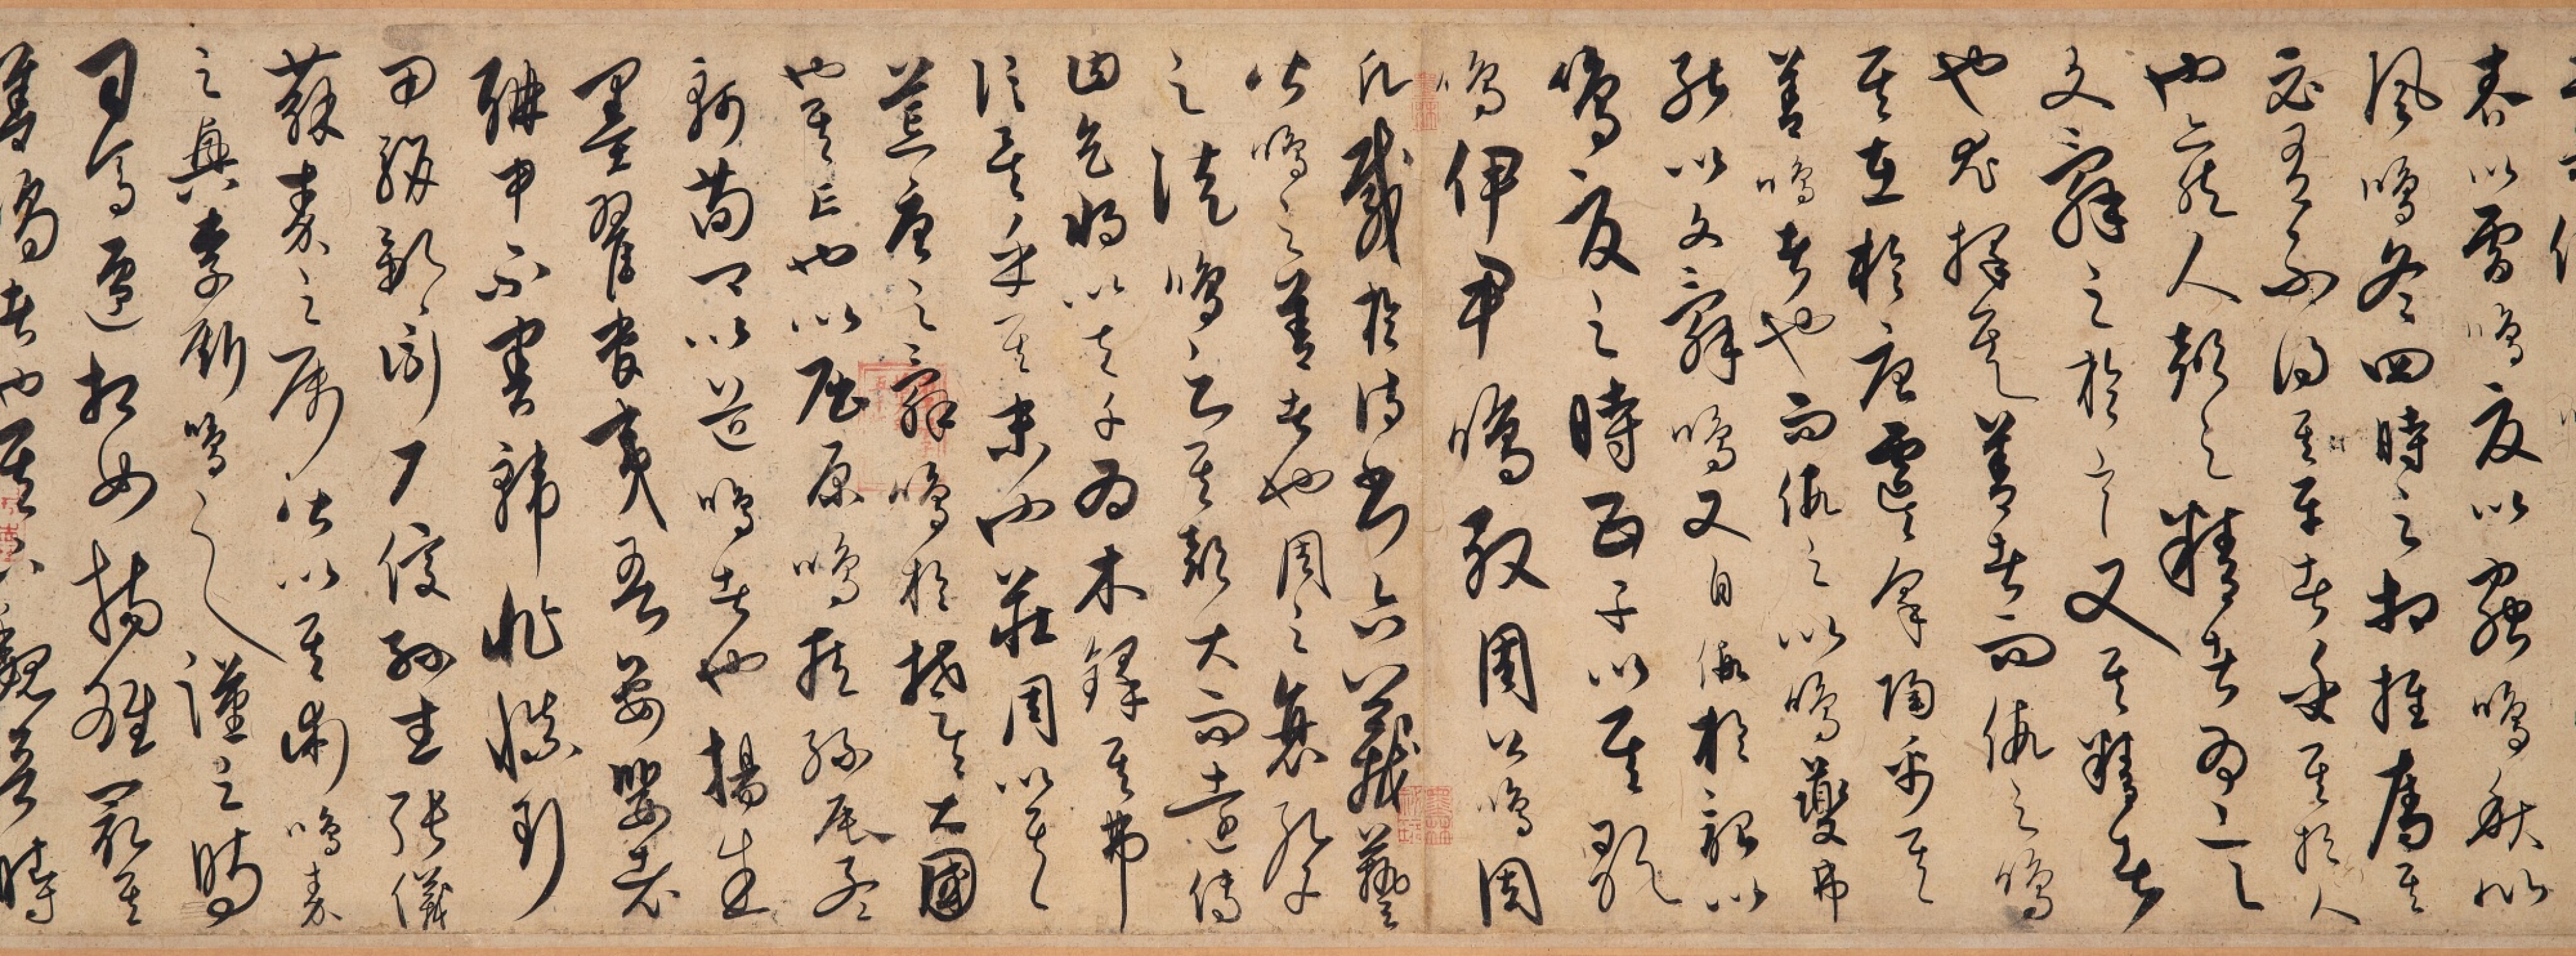 春以雷鳴夏以蟲鳴秋以
風鳴冬四時之相推奪其
必有不得其平者乎其於人
也亦然人聲之精者為言
文辭之於言又其精者
也尤擇其善者而假之鳴
其在唐虞咎陶禹其
善鳴者也而假之以鳴夔弗
能以文辭鳴又自假於韶以
鳴夏之時五子以其歌
鳴伊尹鳴殷周公鳴周
凡載於詩書六藝
皆鳴之善者也周之衰孔子
之徒鳴之其聲大而遠傳
曰天將以夫子為木鐸其弗
信矣乎其末也莊周以其
荒唐之辭鳴於楚楚大國
也其亡也以屈原鳴臧孫辰孟
軻荀卿以道鳴者也楊朱
墨翟管夷吾晏嬰老
聃申不害韓非慎到
田駢鄒衍尸佼孫武張儀
蘇秦之屬皆以其術鳴秦
之興李斯鳴之漢之時
司馬遷相如揚雄最其
善鳴者也其下魏晉時